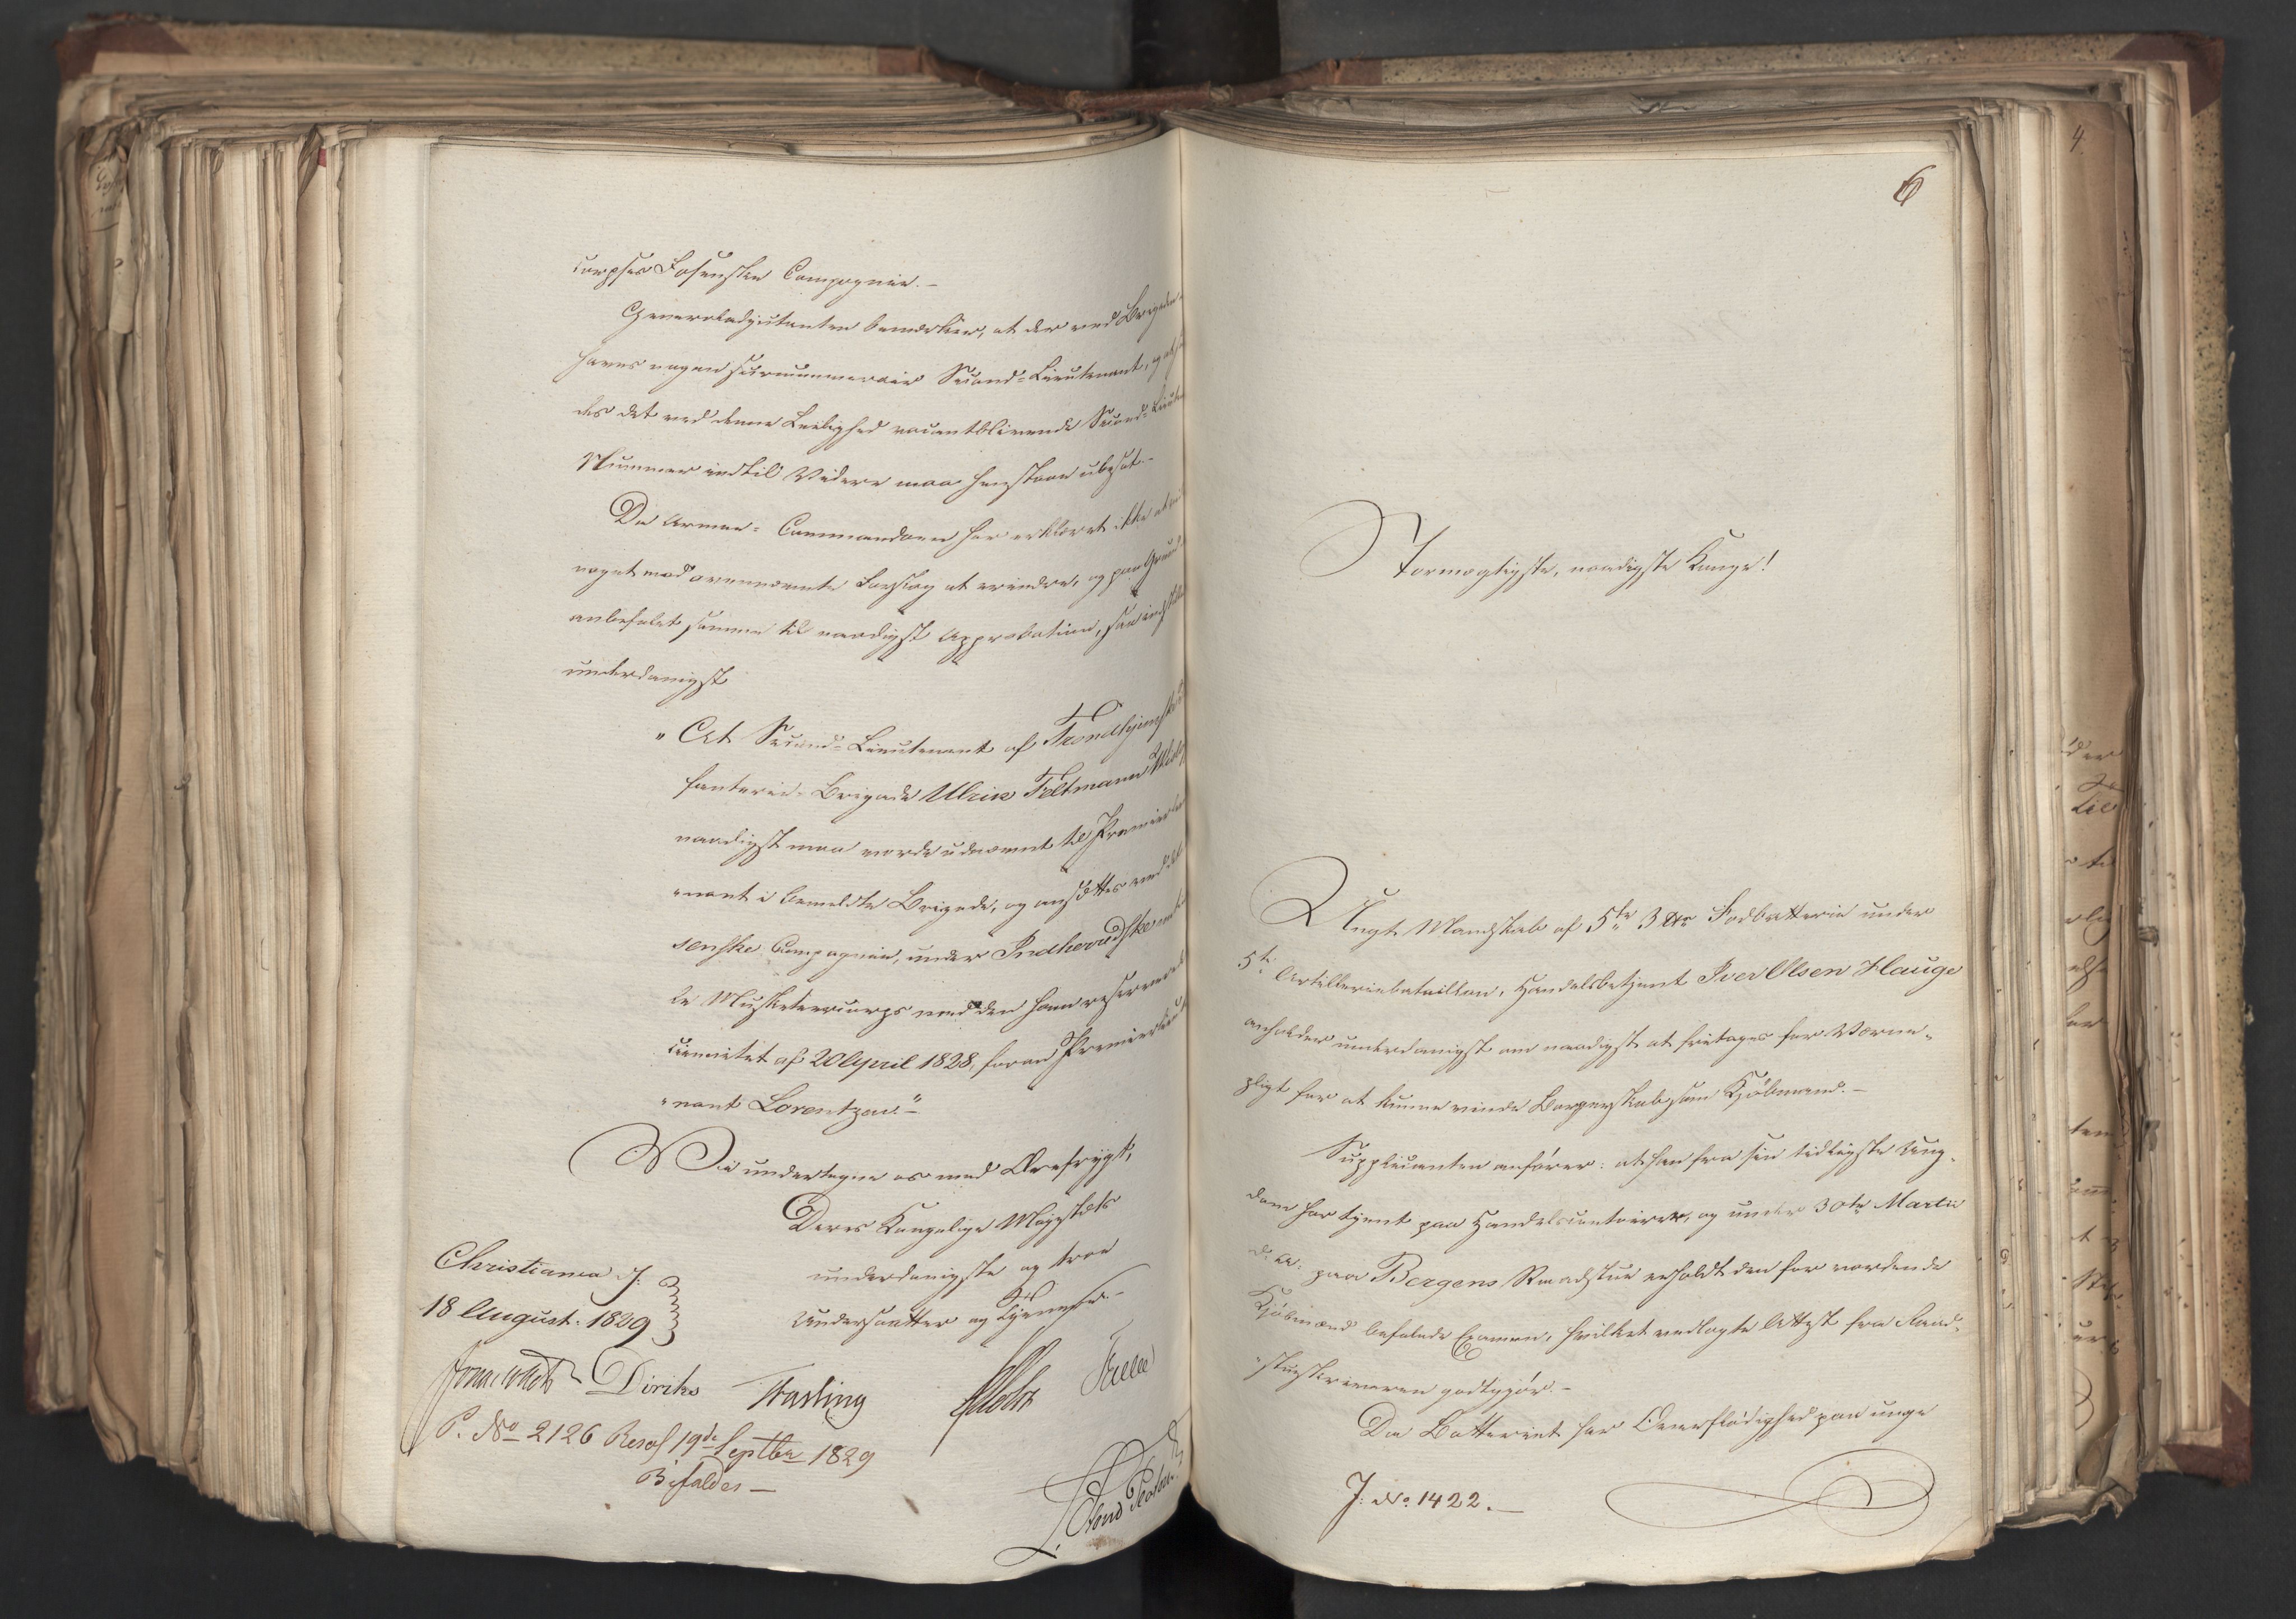 corpsets Fosenske Compagnie. –
Generaladjutanten bemærker, at der ved Brigaden
haves ingen surnummerair Second-Lieutenant, og at
des det ved denne Leilighed vacantblivende Second-
Nummer indtil Videre maa henstaae ubesat. –
Da Armee-Commandoen har erklæret ikke at
noget mod ovennævnte Forslag at erindre, og paa
anbefalet samme til naadigst Approbation, saa
underdanigst
"At Second-Lieutenant af Trondhjemske
fanterie-Brigade Ulrik Feltmann
naadigst maa vorde udnævnt til Premier
"nant i bemeldte Brigade, og ansættes ved det
senske Compagnie, under Indherredske
le Musketeercorps med den ham reserverede
ciennitet af 20 April 1828, foran Premierlieut
"nant Lorentzen." –
Vi undertegne os med Ærefrygt,
Deres Kongelige Majestæts
underdanigste og troe
Undersaatter og Tjenere. –
Christiania d:
18 August: 1829
Jonas Collett Diriks Fasting Holst
P. No 2126 Resol 19de Septbr 1829
Bifaldes –
6
Stormægtigste, naadigste Konge!
Ungt Mandskab af 5te 3 ℔ Fodbatterie under
5te Artilleriebataillon, Handelsbetjent Iver Olsen Hauge
anholder underdanigst om naadigst at fritages for Værne-
pligt for at kunne vinde Borgerskab som Kjöbmand. –
Supplicanten anförer: at han fra sin tidligste Ung-
dom har tjent paa Handelscontoirer, og under 30te Martii
d. A: paa Bergens Raadstue erholdt den for vordende
Kjöbmænd befalede Examen, hvilket vedlagte Attest fra Raad-
"stueskriveren godtgjör. –
Da Batteriet har Overflödighed paa unge
J: No: 1422. –